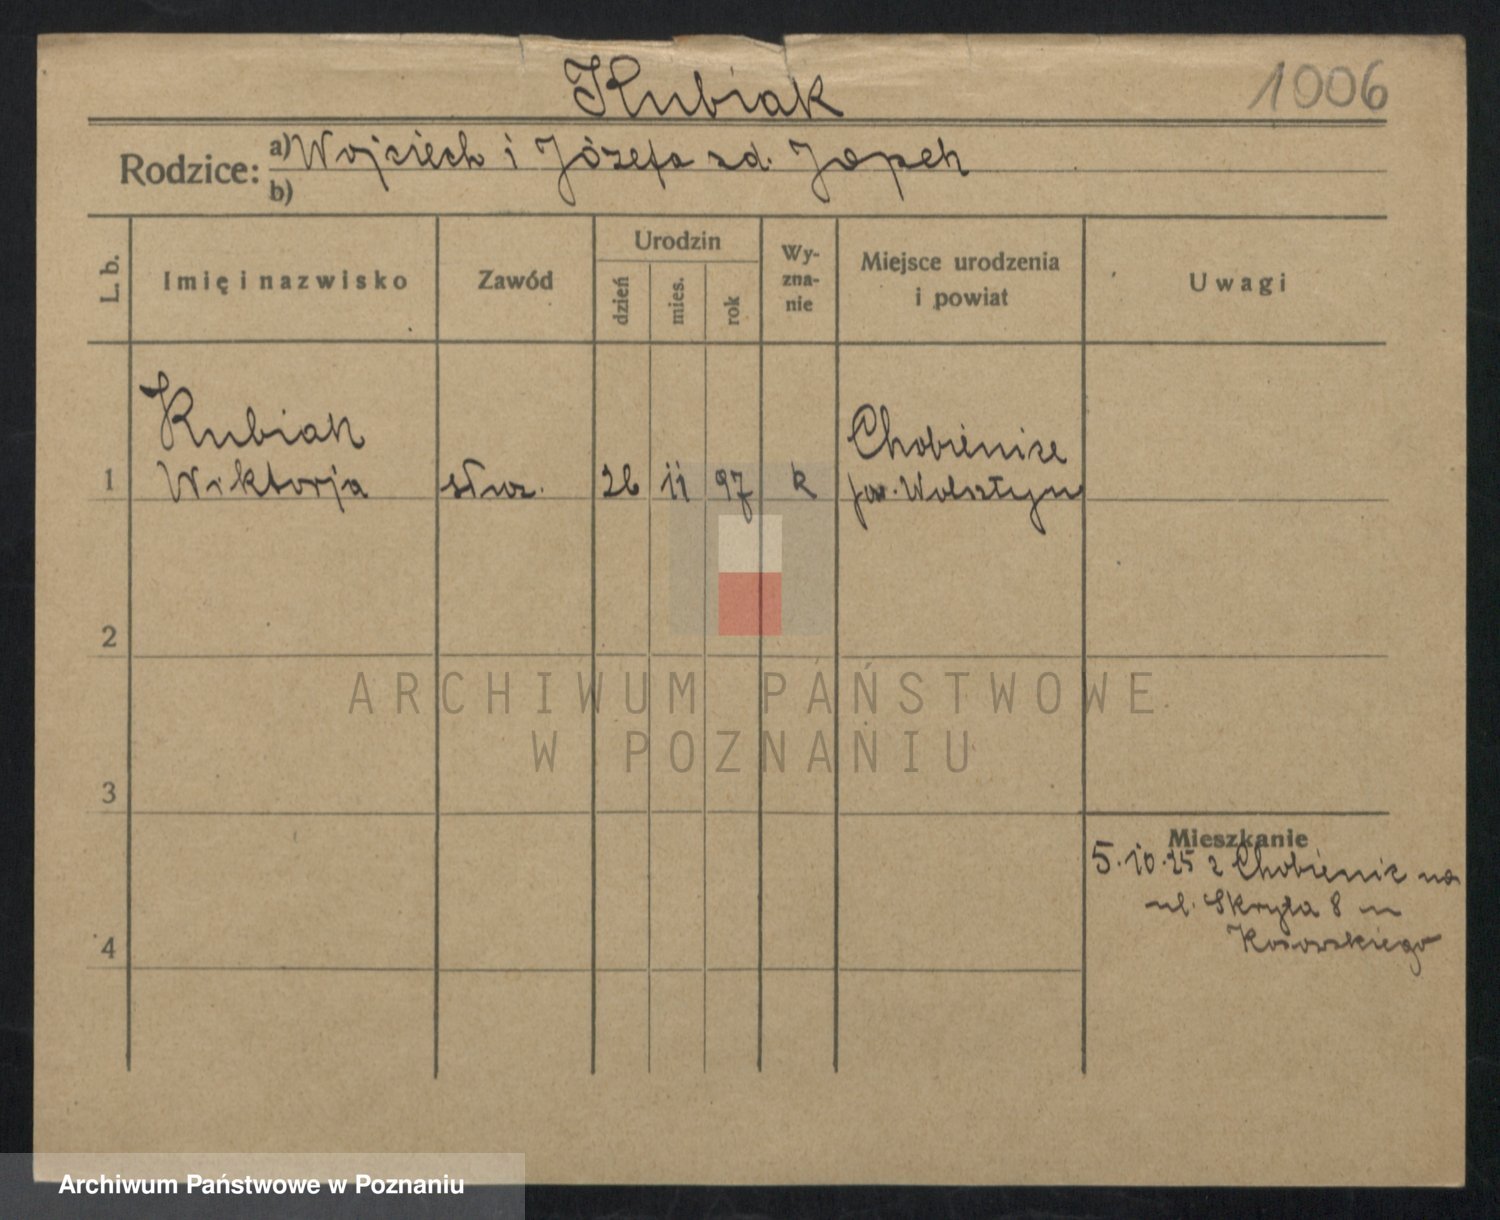 Kubiak
1006
Rodzice: a) Wojciech i Józefa zd. Japeh
b)
L. b.
Imię i nazwisko
Zawód
Urodzin
dzień
mies.
rok
Wy-
zna-
nie
Miejsce urodzenia
i powiat
Uwagi
1
Kubiak
Wiktorja
służ.
26
11
97
k
Chobienice
pow. Wolsztyn
2
3
4
Mieszkanie
5.10.25 z Chobienic na
ul. Skryta 8 u
Kosowskiego
ARCHIWUM PAŃSTWOWE
W POZNANIU
Archiwum Państwowe w Poznaniu